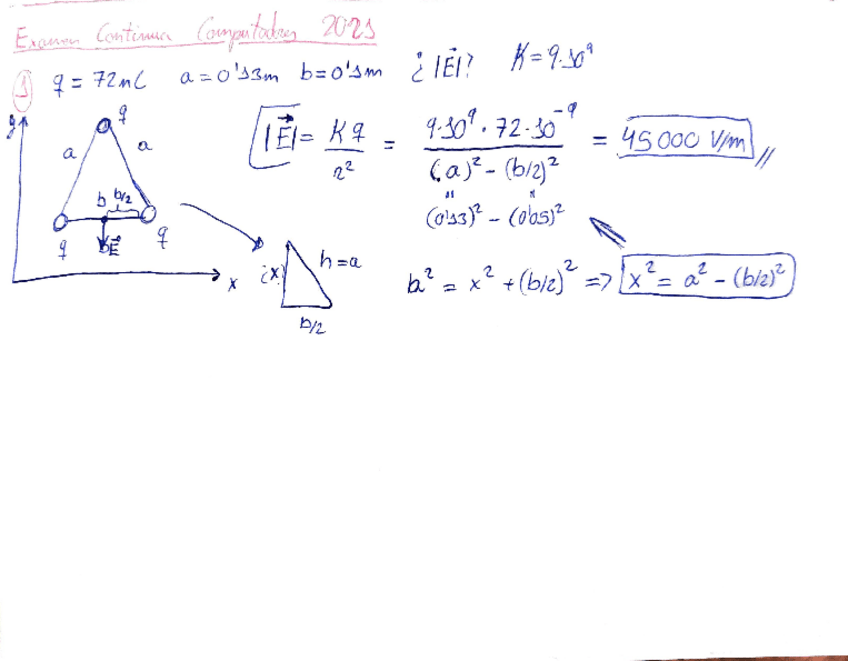 Examen Continua Computadores 2021
1 q = 72nC a = 0'13m b = 0'1m ¿|E⃗|? K = 9·10⁹
y q
a a
b b/2
q E⃗ q
x
|E⃗| = K q / r² = 9·10⁹ · 72·10⁻⁹ / (a)² - (b/2)² = 45000 V/m //
(0'13)² - (0'05)²
¿x? h = a
b/2
h² = x² + (b/2)² => x² = a² - (b/2)²